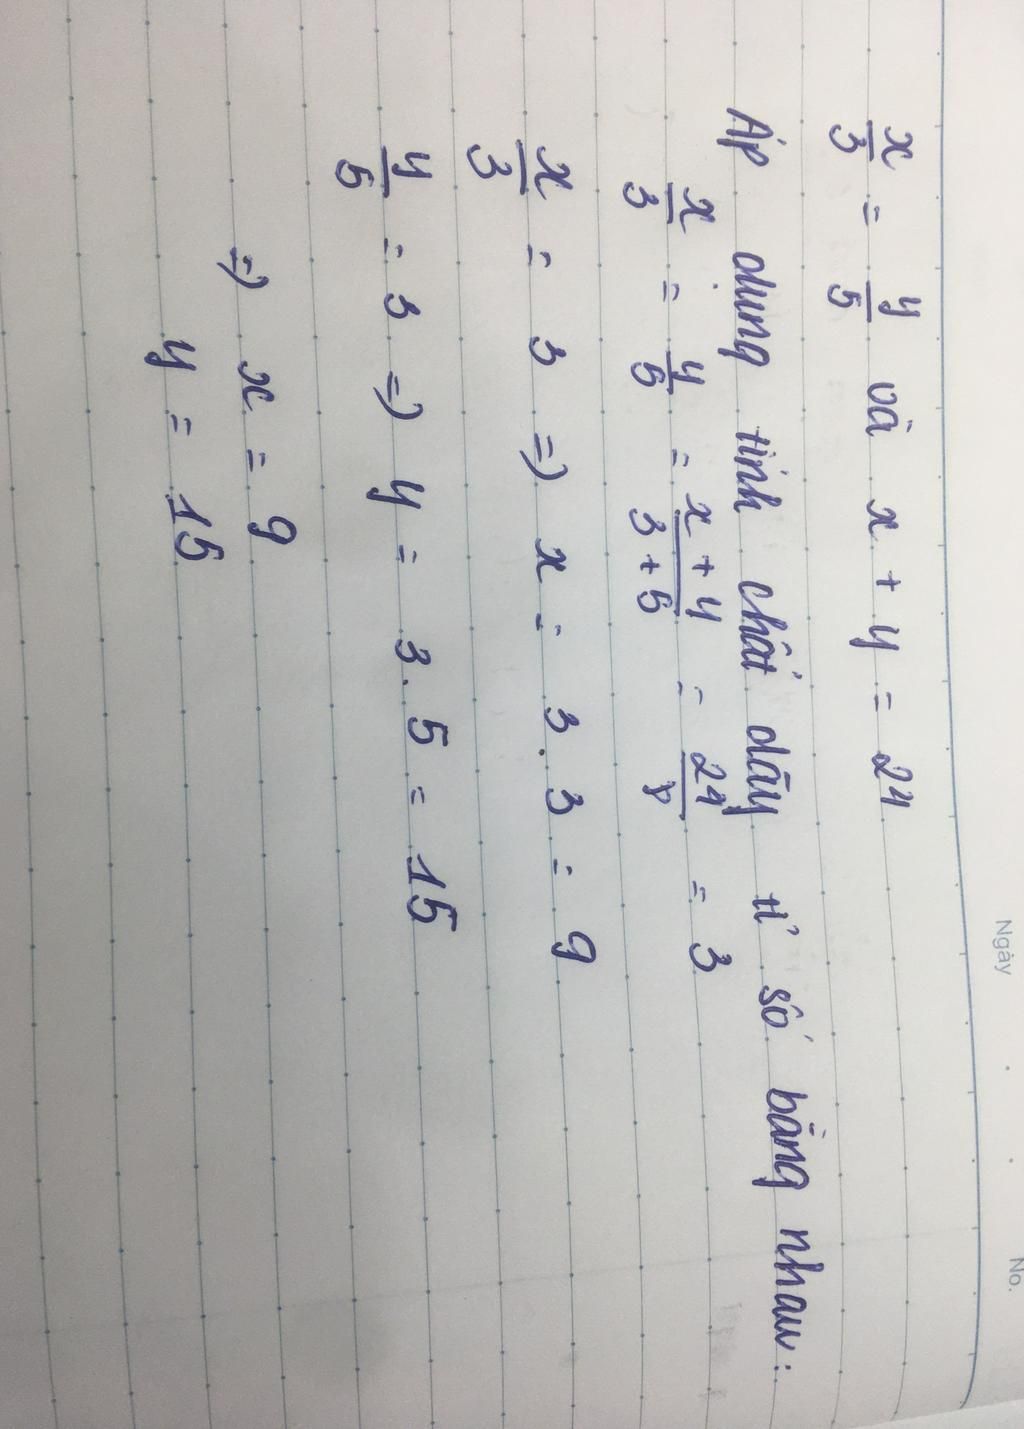 Ngày No.
x/3 = y/5 và x + y = 24
Áp dụng tính chất dãy tỉ số bằng nhau:
x/3 = y/5 = x + y/3 + 5 = 24/8 = 3
x/3 = 3 => x = 3 . 3 = 9
y/5 = 3 => y = 3 . 5 = 15
=> x = 9
y = 15